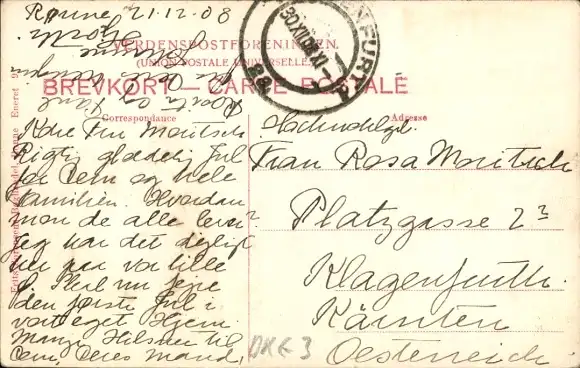 Rønne 21.12.08
VERDENSPOSTFORENINGEN
(UNION POSTALE UNIVERSELLE)
BREVKORT — CARTE POSTALE
Correspondance
Adresse
Kære Fru Moritsch
Rigtig glædelig Jul
for Dem og hele
Familien. Hvordan
mon de alle lever?
Jeg har det dejligt
her paa vor lille
Ø. Skal nu fejre
den første Jul i
vort eget Hjem.
Mange Hilsner til
Dem, Deres Mand,
Frau Rosa Moritsch
Platzgasse 23
Klagenfurth.
Kärnten
Oesterreich
DKE 3